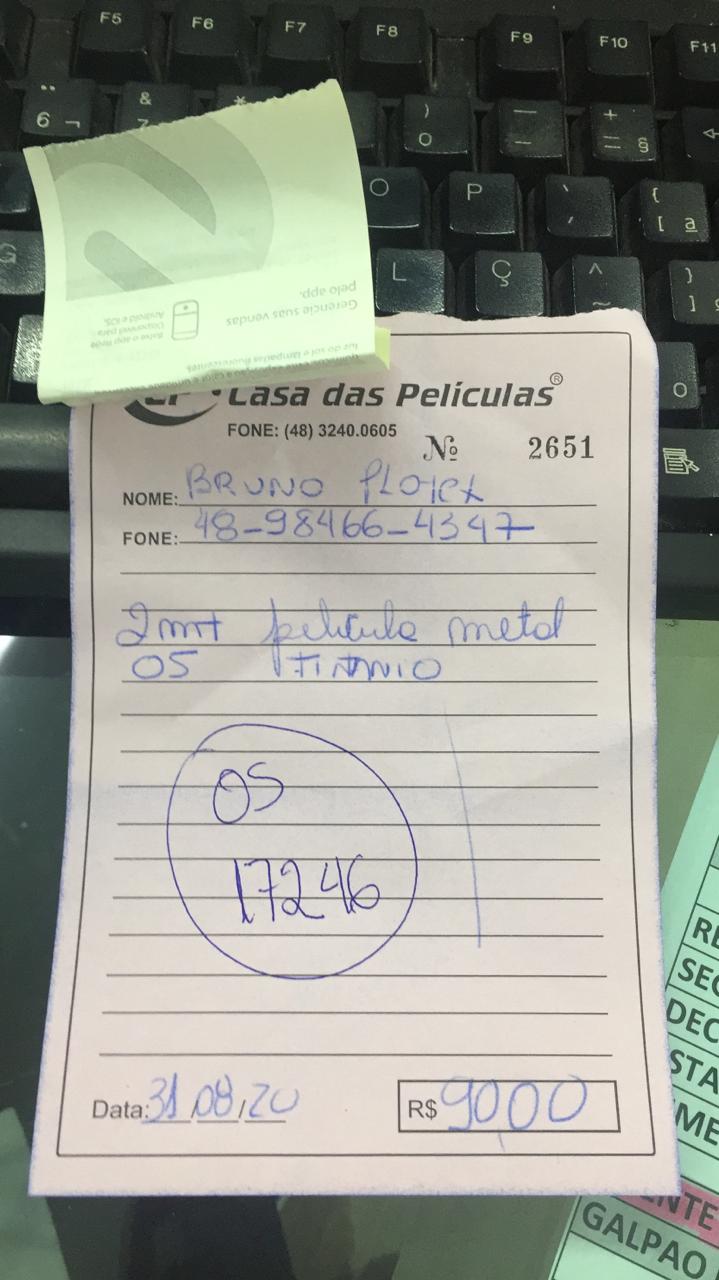 F5 F6 F7 F8 F9 F10 F11
6 ¬ & 7 * ) 0 — – + = §
O P ` ´ { [ ª
G L Ç ^ ~ } ]
Gerencie suas vendas
pelo app.
Baixe o app Rede
Disponível para
Android e iOS.
luz do sol e lâmpadas fluorescentes
Casa das Películas®
FONE: (48) 3240.0605
Nº 2651
NOME: BRUNO
FONE: 48-98466-4347
2mt pelicula metal
05 TITANIO
OS
17246
Data: 31/08/20
R$ 9000
RE
SEC
DEC
STA
ME
ENTE
GALPAO